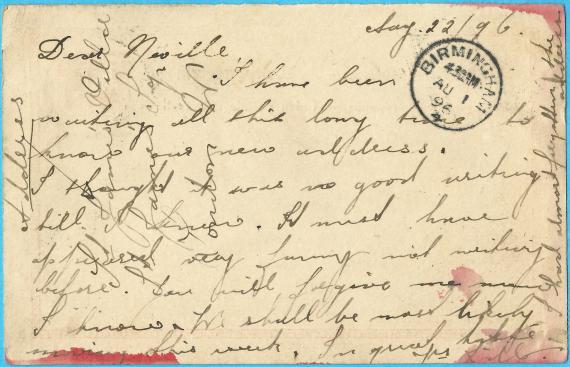 Aug. 22/96.
Dear Neville,
I have been
waiting all this long time to
know our new address.
I thought it was no good writing
till I knew. It must have
appeared very funny not writing
before. You will forgive me now
I know. We shall be most likely
moving this week. In great haste
BIRMINGHAM
AU 1
96
Address
I had almost forgotten the address